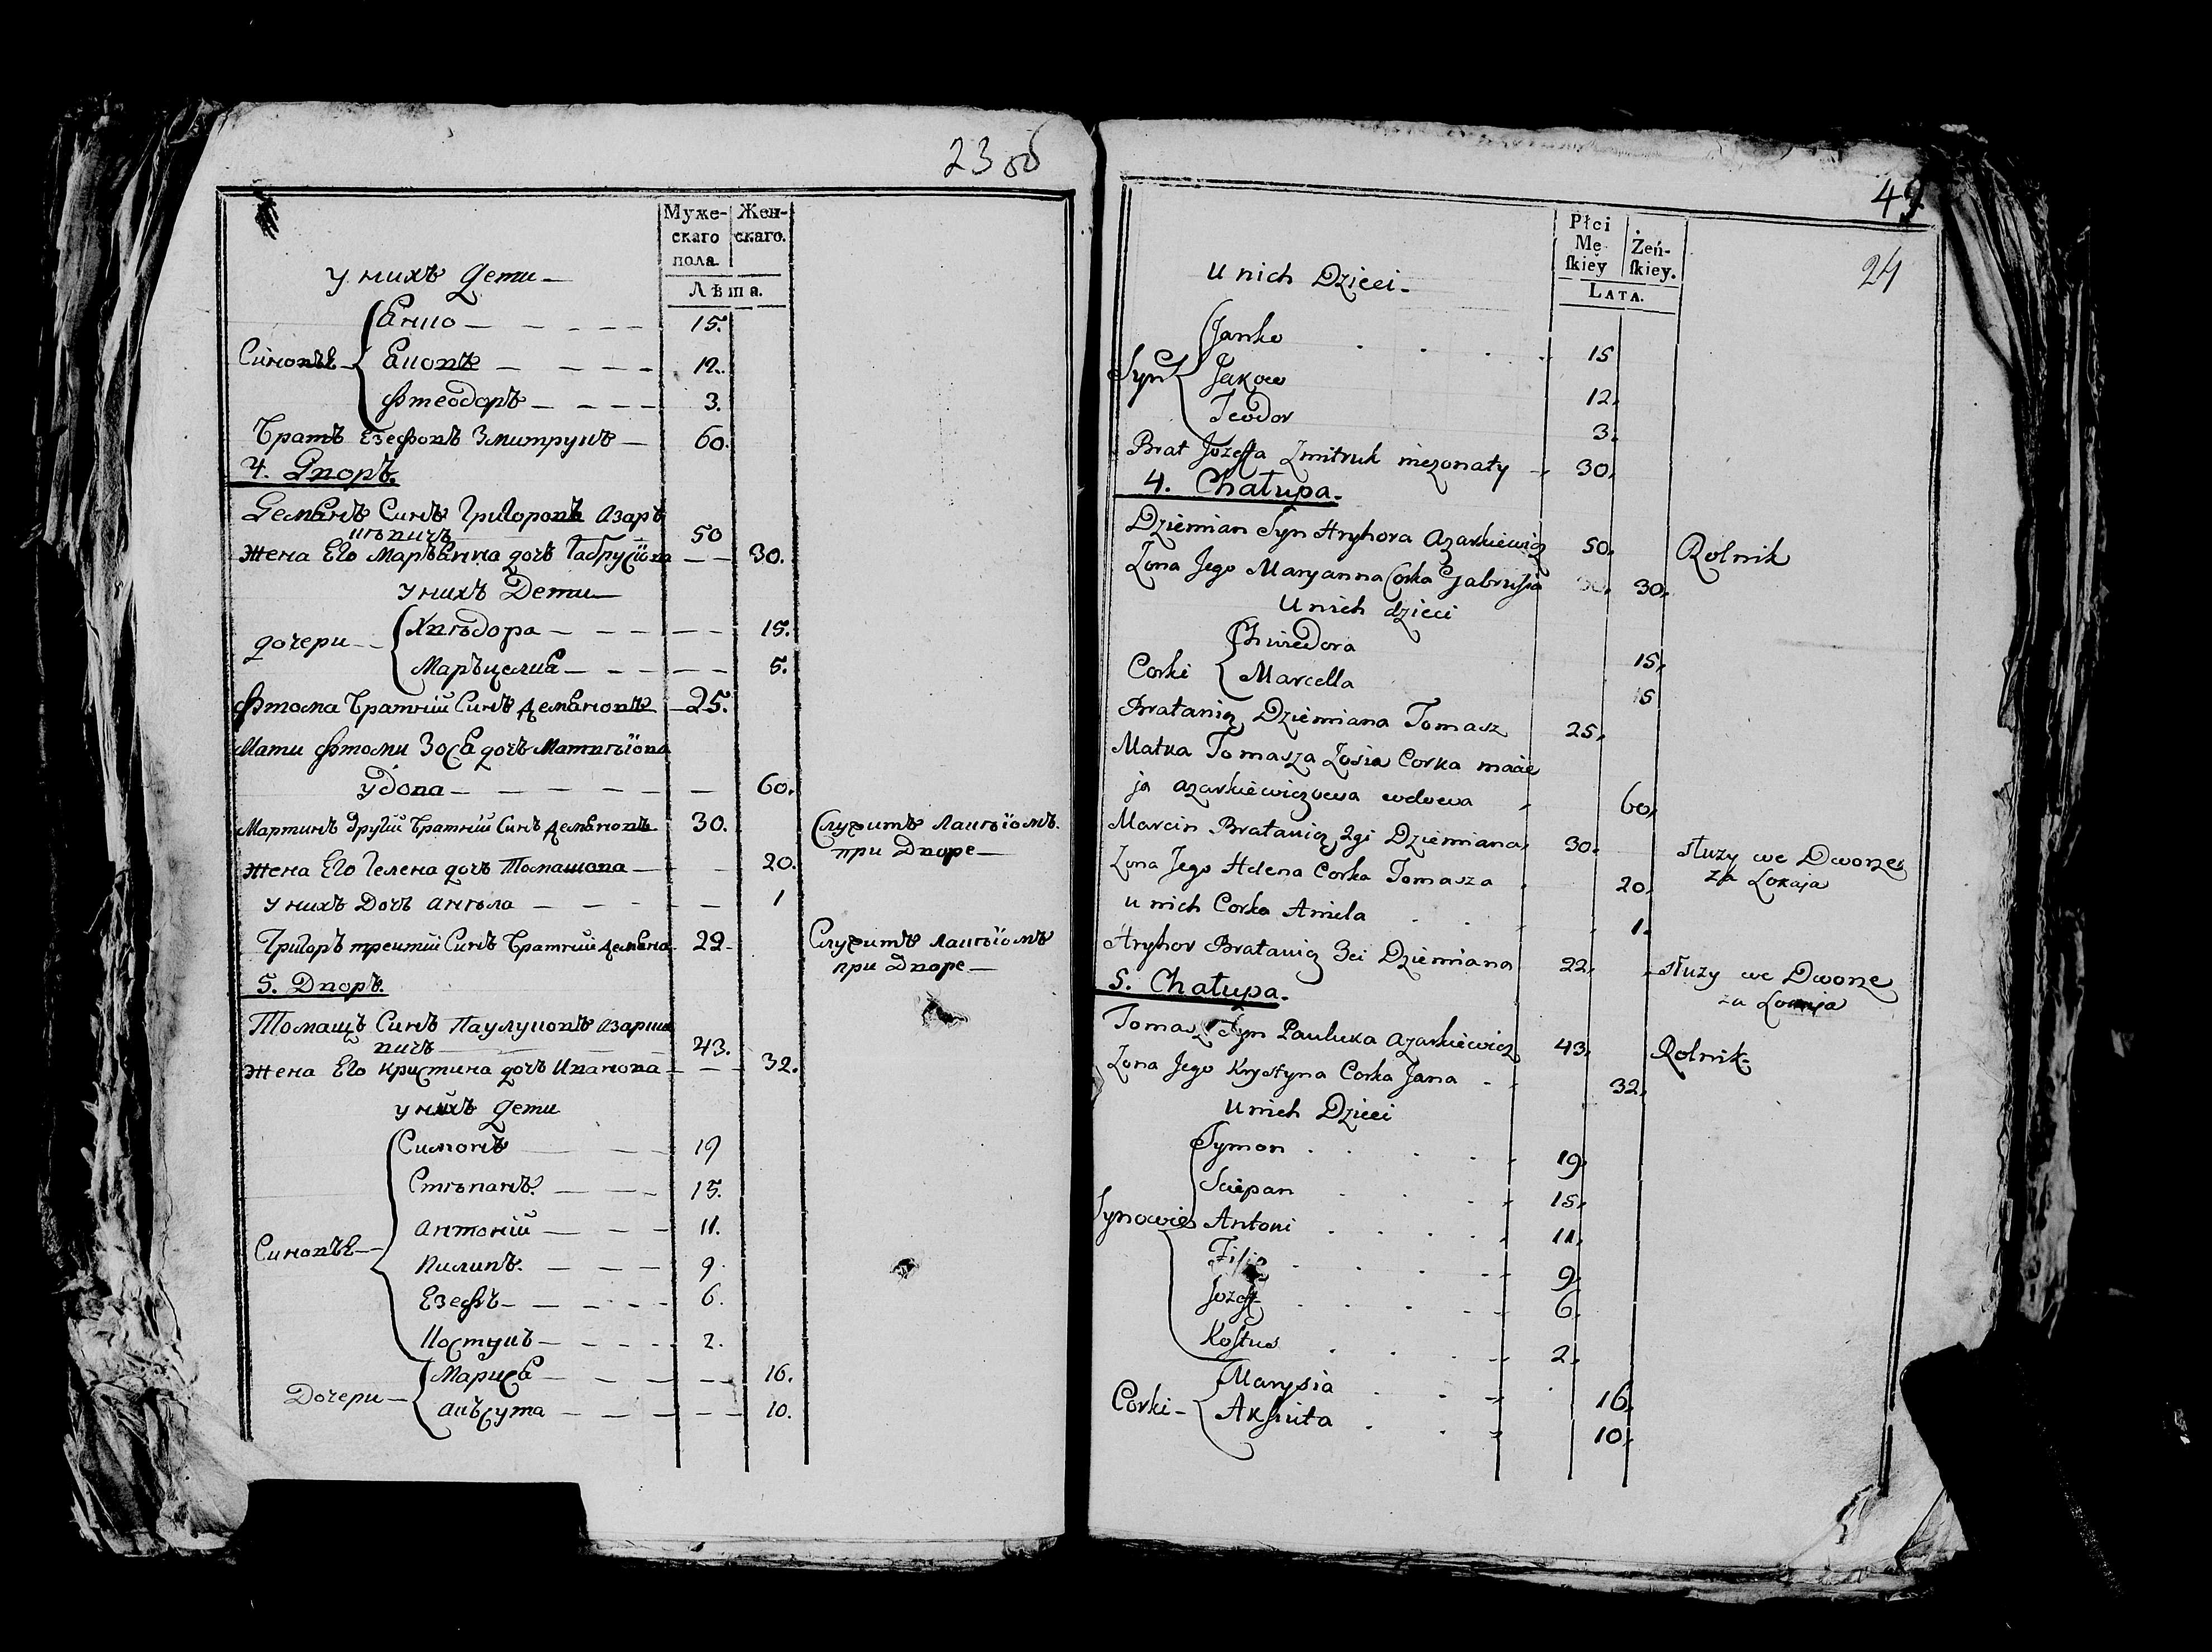 23 об
Муже-
скаго
пола.
Жен-
скаго.
Лѣта.
У нихъ Дети
Янко 15.
Синовъя Яковъ 12.
Фтеодоръ 3.
Братъ Езефовъ Змитрукъ 60.
4. Дворъ.
Демянъ Синъ Григоровъ Азарь
кевичъ 50
Жена Его Маръянна дочъ Габрусіова 30.
У нихъ Дети
Хвѣдора 15.
Дочери
Маръцеля 5.
Фтома Братній Синъ Демяновъ 25.
Мати Фтоми Зося дочъ Матвѣіова
удова 60.
Мартинъ Другій Братній Синъ Демяновъ 30. Служитъ Лакеіомъ
при Дворе
Жена Его Гелена дочъ Томашова 20.
У нихъ Дочъ Анѣла 1
Григоръ третій Синъ Братній Демяна 22 Служитъ Лакеіомъ
при Дворе
5. Дворъ.
Томашъ Синъ Паулуковъ Азарке
вичъ 43.
Жена Его Кристина дочъ Иванова 32.
У нихъ Дети
Симонъ 19
Стѣпанъ 15.
Антоній 11.
Синовъя
Пилипъ 9.
Езефъ 6.
Костукъ 2.
Марися 16.
Дочери
Акъсута 10.
49.
24
Płci
Mę
ſkiey
Żeń-
ſkiey.
Lata.
U nich Dzieci
Janko 15
Syn Jakow 12.
Teodor 3.
Brat Jozefa Zmitruk niezonaty 30.
4. Chałupa.
Dziemian Syn Hryhora Azarkiewicz 50. Rolnik
Zona Jego Maryanna Corka Gabrusia 30.
U nich dzieci
Chwiedora 15.
Corki Marcella 15
Bratanicz Dziemiana Tomasz 25.
Matka Tomasza Zosia Corka macie
ja azarkiewiczowa wdowa 60.
Marcin Bratanicz 2gi Dziemiana 30. słuzy we Dworze
za Lokaja
Zona Jego Helena Corka Tomasza 20.
u nich Corka Aniela 1.
Hryhor Bratanicz 3ci Dziemiana 22. słuzy we Dworze
za Lokaja
5. Chałupa.
Tomasz Syn Pauluka Azarkiewicz 43. Rolnik
Zona Jego Krystyna Corka Jana 32.
U nich Dzieci
Symon 19.
Sciepan 15.
Synowie Antoni 11.
Filip 9.
Jozef 6.
Koſtus 2.
Marysia 16.
Corki Akſiuta 10.